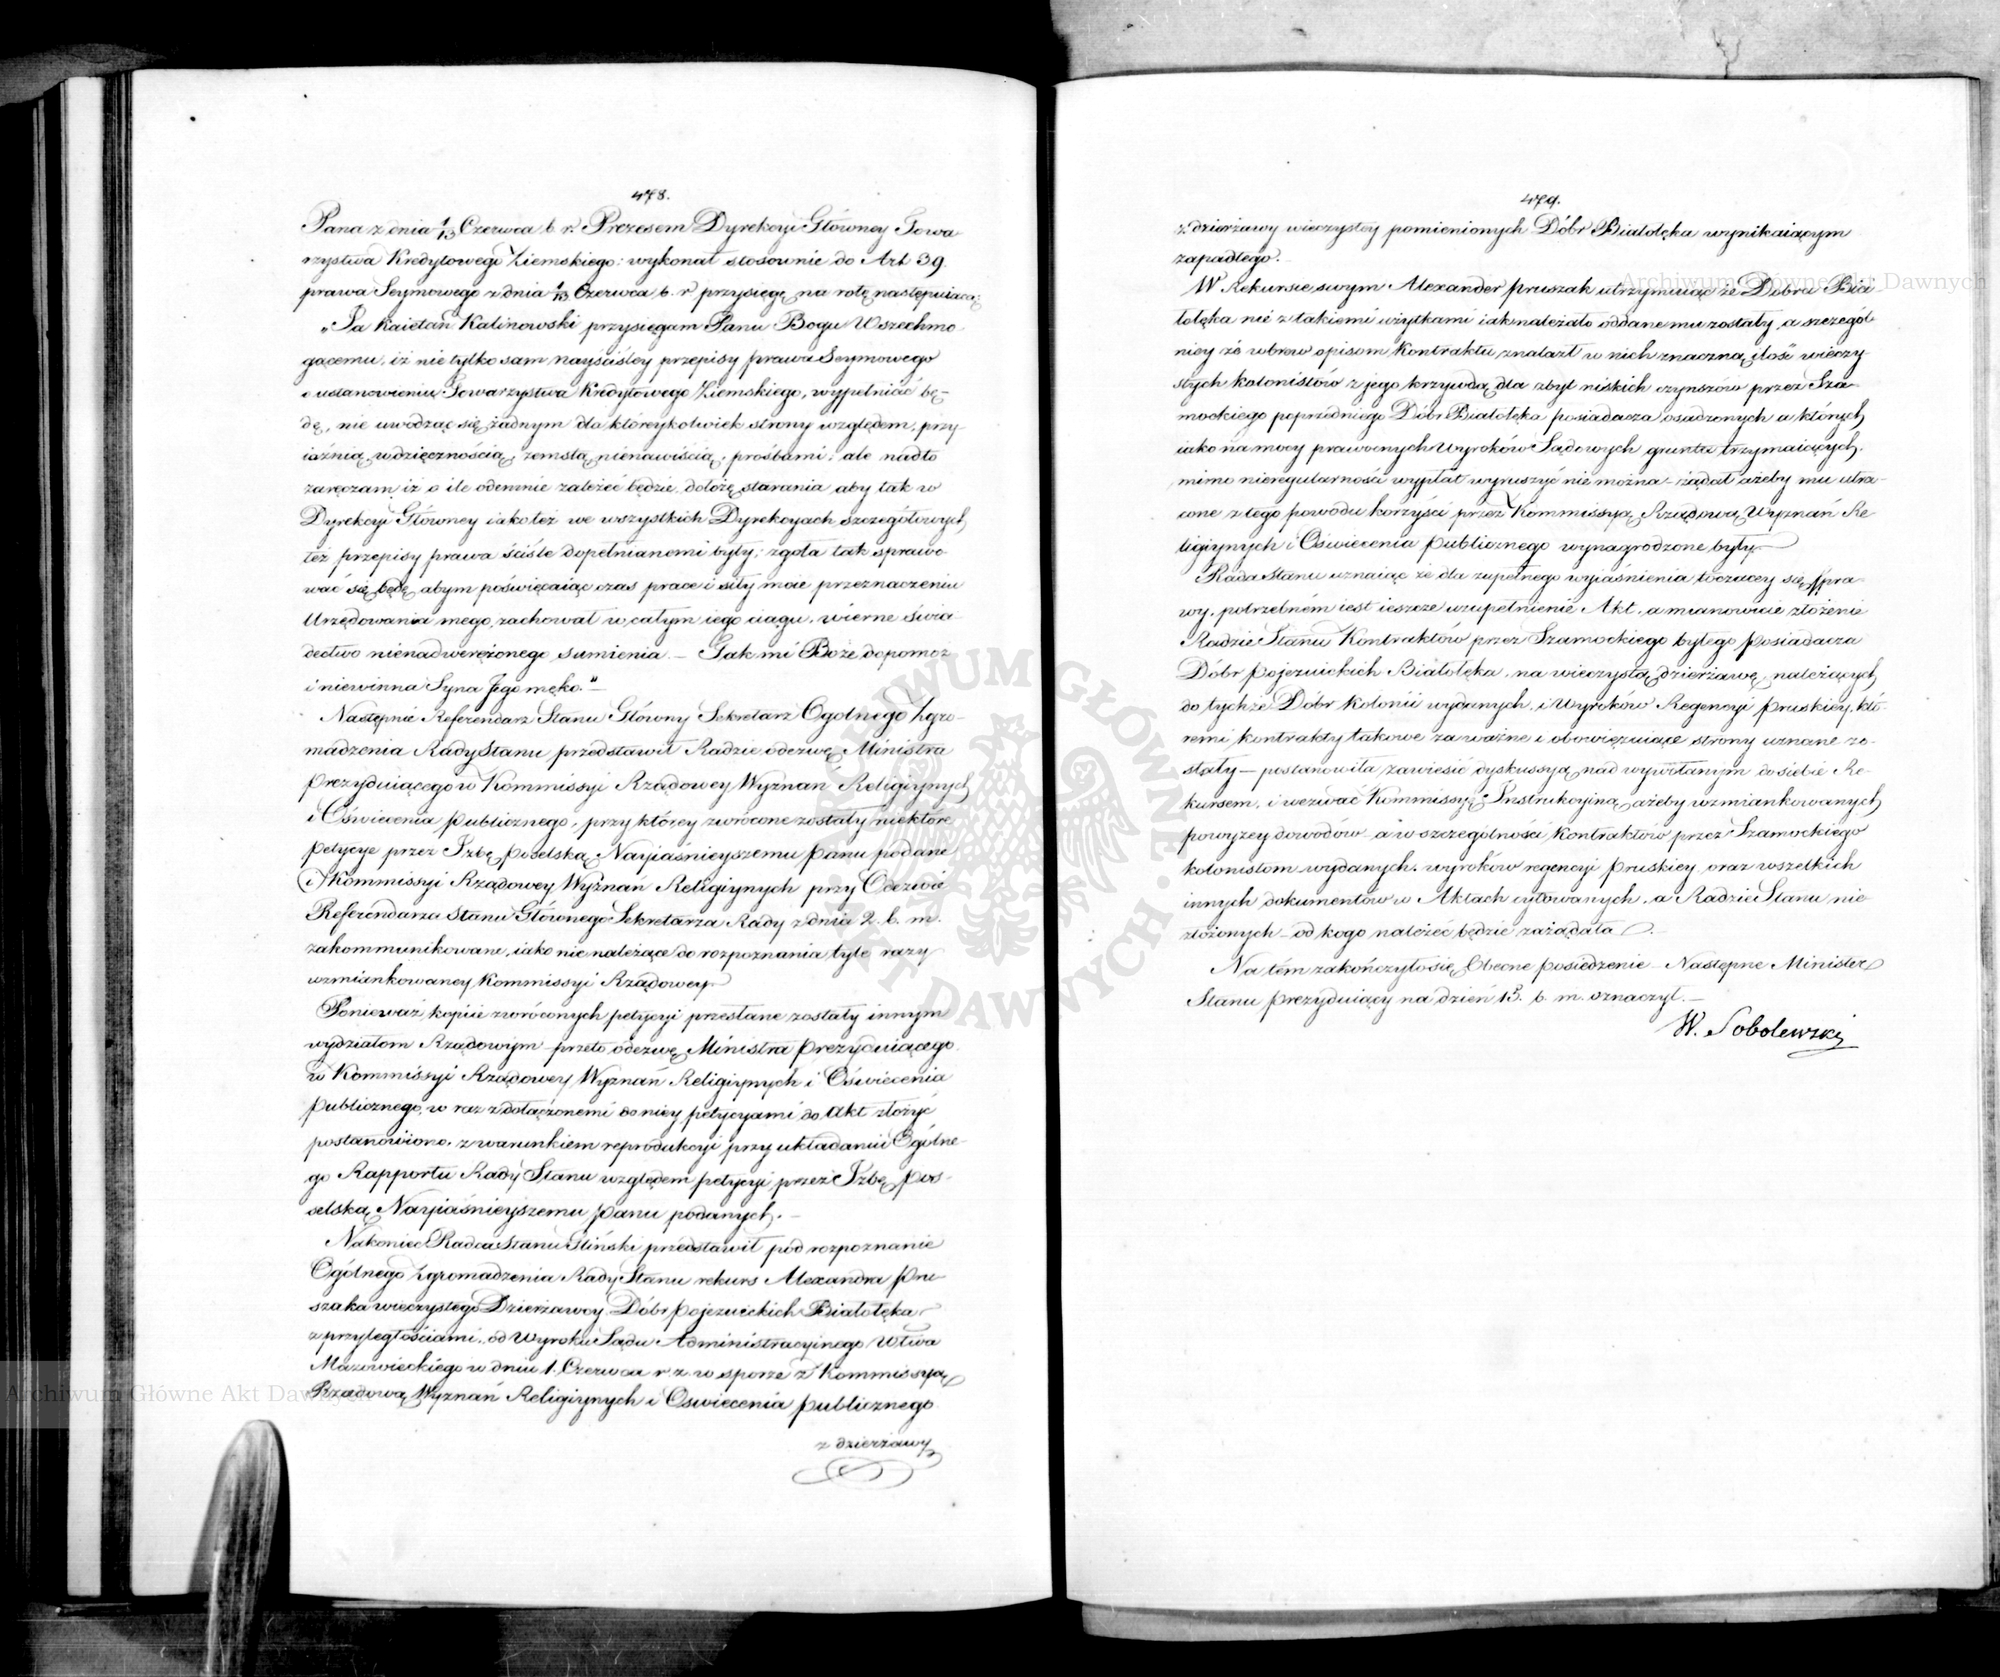 478.
Pana z dnia 1/13 Czerwca b. r. Prezesem Dyrekcyi Główney Towa-
rzystwa Kredytowego Ziemskiego: wykonał stosownie do Art 39.
prawa Seymowego z dnia 1/13 Czerwca b. r. przysięgę na rotę następuiącą:
„Ja Kaietan Kalinowski przysięgam Panu Bogu Wszechmo-
gącemu, iż nie tylko sam nayściśley przepisy prawa Seymowego
o ustanowieniu Towarzystwa Kredytowego Ziemskiego, wypełniać bę-
dę, nie uwodząc się żadnym dla któreykolwiek strony względem, przy-
iaźnią, wdzięcznością, zemstą, nienawiścią, prośbami; ale nadto
zaręczam iż o ile odemnie zależeć będzie dołożę starania aby tak w
Dyrekcyi Główney iako też we wszystkich Dyrekcyach szczegółowych
też przepisy prawa ściśle dopełnianemi były; zgoła tak sprawo-
wać się będę abym poświęcaiąc czas prace i siły moie przeznaczeniu
Urzędowania mego, zachował w całym iego ciągu, wierne świa-
dectwo nienadwerężonego sumienia. — Tak mi Boże dopomoż
i niewinna Syna Jego męko." —
Następnie Referendarz Stanu Główny Sekretarz Ogólnego Zgro-
madzenia Rady Stanu przedstawił Radzie odezwę Ministra
Prezyduiącego w Kommissyi Rządowey Wyznań Religiynych
i Oświecenia Publicznego, przy którey zwrócone zostały niektóre
Petycye przez Izbę Poselską Nayiaśnieyszemu Panu podane
i Kommissyi Rządowey Wyznań Religiynych przy Odezwie
Referendarza Stanu Głównego Sekretarza Rady z dnia 2. b. m.
zakommunikowane, iako nie należące do rozpoznania tyle razy
wzmiankowaney Kommissyi Rządowey.
Ponieważ kopiie zwróconych petycyi przesłane zostały innym
wydziałom Rządowym przeto odezwę Ministra Prezyduiącego
w Kommissyi Rządowey Wyznań Religiynych i Oświecenia
Publicznego, w raz z dołączonemi do niey petycyami do Akt złożyć
postanowiono, z warunkiem reprodukcyi przy układaniu Ogólne-
go Rapportu Rady Stanu względem petycyi przez Izbę Po-
selską Nayiaśnieyszemu Panu podanych. —
Nakoniec Radca Stanu Gliński przedstawił pod rozpoznanie
Ogólnego Zgromadzenia Rady Stanu rekurs Alexandra Pru-
szaka wieczystego Dzierżawcy Dóbr Pojezuickich Białołęka
z przyległościami, od Wyroku Sądu Administracyinego Wtwa
Mazowieckiego w dniu 1. Czerwca r. z. w sporze z Kommissyą
Rządową Wyznań Religiynych i Oswiecenia Publicznego
z dzierżawy
479.
z dzierżawy wieczystey pomienionych Dóbr Białołęka wynikaiącym
zapadłego.
W Rekursie swym Alexander Pruszak utrzymuiąc że Dobra Bia-
łołęka nie z takiemi użytkami iak należało oddane mu zostały, a szczegól-
niey że wbrew opisom Kontraktu znalazł w nich znaczną ilość wieczy-
stych kolonistów z jego krzywdą dla zbyt niskich czynszów przez Sza-
mockiego poprzedniego Dóbr Białołęka posiadacza osadzonych a których
iako na mocy prawomocnych Wyroków Sądowych grunta trzymaiących,
mimo nieregularności wypłat wyruszyć nie można — żądał ażeby mu utra-
cone z tego powodu korzyści przez Kommissyą Rządową Wyznań Re-
ligiynych i Oświecenia Publicznego wynagrodzone były.
Rada Stanu uznaiąc że dla zupełnego wyiaśnienia toczącey się Spra-
wy, potrzebném iest ieszcze uzupełnienie Akt, a mianowicie złożenie
Radzie Stanu Kontraktów przez Szamockiego byłego Posiadacza
Dóbr Pojezuickich Białołęka, na wieczystą dzierżawę, należących
do tychże Dóbr Kolonii wydanych, i Wyroków Regencyi Pruskiey, któ-
remi kontrakty takowe za ważne i obowięzuiące strony uznane zo-
stały — postanowiła zawiesić dyskussyą nad wywołanym do siebie Re-
kursem, i wezwać Kommissyą Instrukcyiną ażeby wzmiankowanych
powyzey dowodów a w szczególności Kontraktów przez Szamockiego
kolonistom wydanych, wyroków regencyi Pruskiey oraz wszelkich
innych dokumentów w Aktach cytowanych, a Radzie Stanu nie
złożonych — od kogo należeć będzie zażądała.
Na tém zakończyło się Obecne Posiedzenie — Następne Minister
Stanu Prezyduiący na dzień 15. b. m. oznaczył. —
W. Sobolewski
Archiwum Główne Akt Dawnych
Archiwum Główne Akt Dawnych
ARCHIWUM GŁÓWNE AKT DAWNYCH